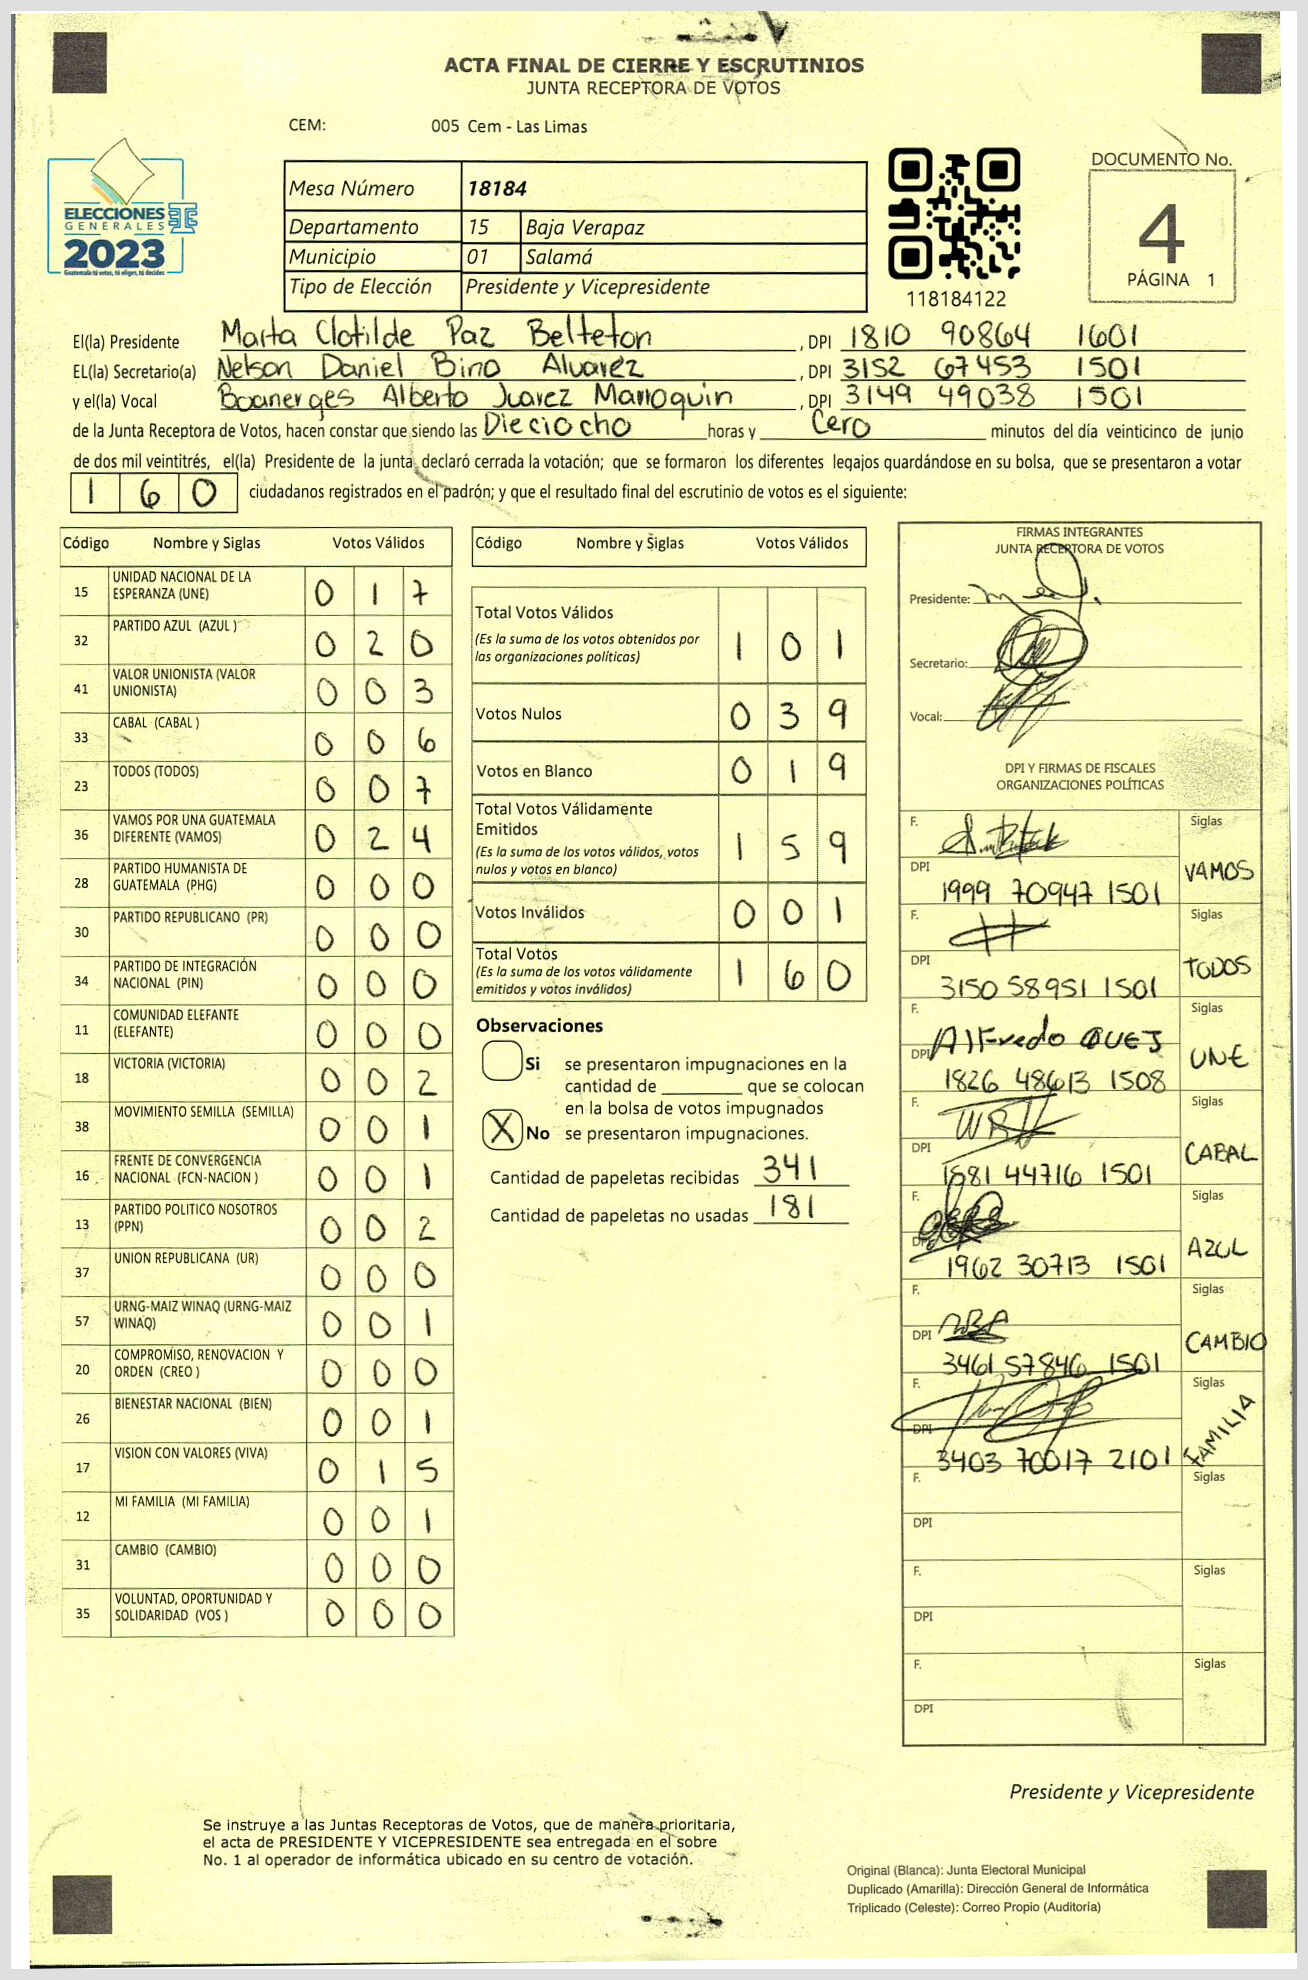 ACTA FINAL DE CIERRE Y ESCRUTINIOS
JUNTA RECEPTORA DE VOTOS
CEM: 005 Cem - Las Limas
ELECCIONES
GENERALES
2023
Guatemala tú votas, tú eliges, tú decides
Mesa Número 18184
Departamento 15 Baja Verapaz
Municipio 01 Salamá
Tipo de Elección Presidente y Vicepresidente
118184122
DOCUMENTO No.
4
PÁGINA 1
El(la) Presidente Marta Clotilde Paz Belteton, DPI 1810 90864 1601
EL(la) Secretario(a) Nelson Daniel Bino Alvarez, DPI 3152 67453 1501
y el(la) Vocal Boanerges Alberto Juarez Marroquin, DPI 3149 49038 1501
de la Junta Receptora de Votos, hacen constar que siendo las Dieciocho horas y Cero minutos del día veinticinco de junio
de dos mil veintitrés, el(la) Presidente de la junta declaró cerrada la votación; que se formaron los diferentes legajos guardándose en su bolsa, que se presentaron a votar
160 ciudadanos registrados en el padrón; y que el resultado final del escrutinio de votos es el siguiente:
Código Nombre y Siglas Votos Válidos
15 UNIDAD NACIONAL DE LA ESPERANZA (UNE) 0 1 7
32 PARTIDO AZUL (AZUL ) 0 2 0
41 VALOR UNIONISTA (VALOR UNIONISTA) 0 0 3
33 CABAL (CABAL ) 0 0 6
23 TODOS (TODOS) 0 0 7
36 VAMOS POR UNA GUATEMALA DIFERENTE (VAMOS) 0 2 4
28 PARTIDO HUMANISTA DE GUATEMALA (PHG) 0 0 0
30 PARTIDO REPUBLICANO (PR) 0 0 0
34 PARTIDO DE INTEGRACIÓN NACIONAL (PIN) 0 0 0
11 COMUNIDAD ELEFANTE (ELEFANTE) 0 0 0
18 VICTORIA (VICTORIA) 0 0 2
38 MOVIMIENTO SEMILLA (SEMILLA) 0 0 1
16 FRENTE DE CONVERGENCIA NACIONAL (FCN-NACION ) 0 0 1
13 PARTIDO POLITICO NOSOTROS (PPN) 0 0 2
37 UNION REPUBLICANA (UR) 0 0 0
57 URNG-MAIZ WINAQ (URNG-MAIZ WINAQ) 0 0 1
20 COMPROMISO, RENOVACION Y ORDEN (CREO ) 0 0 0
26 BIENESTAR NACIONAL (BIEN) 0 0 1
17 VISION CON VALORES (VIVA) 0 1 5
12 MI FAMILIA (MI FAMILIA) 0 0 1
31 CAMBIO (CAMBIO) 0 0 0
35 VOLUNTAD, OPORTUNIDAD Y SOLIDARIDAD (VOS ) 0 0 0
Código Nombre y Siglas Votos Válidos
Total Votos Válidos 1 0 1
(Es la suma de los votos obtenidos por
las organizaciones políticas)
Votos Nulos 0 3 9
Votos en Blanco 0 1 9
Total Votos Válidamente
Emitidos 1 5 9
(Es la suma de los votos válidos, votos
nulos y votos en blanco)
Votos Inválidos 0 0 1
Total Votos 1 6 0
(Es la suma de los votos válidamente
emitidos y votos inválidos)
Observaciones
Si se presentaron impugnaciones en la
cantidad de ________ que se colocan
en la bolsa de votos impugnados
X No se presentaron impugnaciones.
Cantidad de papeletas recibidas 341
Cantidad de papeletas no usadas 181
FIRMAS INTEGRANTES
JUNTA RECEPTORA DE VOTOS
Presidente:
Secretario:
Vocal:
DPI Y FIRMAS DE FISCALES
ORGANIZACIONES POLÍTICAS
F. Siglas
DPI 1999 70947 1501 VAMOS
F. Siglas
DPI 3150 58951 1501 TODOS
F. Alfredo QUEJ Siglas
DPI 1826 48613 1508 UNE
F. Siglas
DPI 1581 44716 1501 CABAL
F. Siglas
DPI 1962 30713 1501 AZUL
F. Siglas
DPI 3461 57846 1501 CAMBIO
F. Siglas
DPI 3403 70017 2101 FAMILIA
F. Siglas
DPI
F. Siglas
DPI
F. Siglas
DPI
Presidente y Vicepresidente
Se instruye a las Juntas Receptoras de Votos, que de manera prioritaria,
el acta de PRESIDENTE Y VICEPRESIDENTE sea entregada en el sobre
No. 1 al operador de informática ubicado en su centro de votación.
Original (Blanca): Junta Electoral Municipal
Duplicado (Amarilla): Dirección General de Informática
Triplicado (Celeste): Correo Propio (Auditoría)